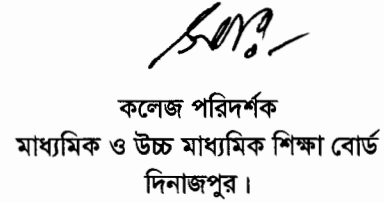 কলেজ পরিদর্শক
মাধ্যমিক ও উচ্চ মাধ্যমিক শিক্ষা বোর্ড
দিনাজপুর।